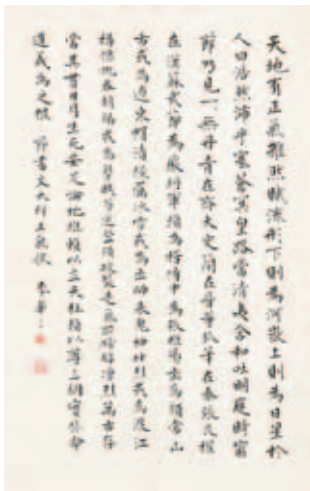 天地有正氣雜然賦流形下則為河嶽上則為日星於
人曰浩然沛乎塞蒼冥皇路當清夷含和吐明庭時窮
節乃見一一垂丹青在齊太史簡在晉董狐筆在秦張良椎
在漢蘇武節為嚴將軍頭為嵇侍中血為張睢陽齒為顏常山
舌或為遼東帽清操厲冰雪或為出師表鬼神泣壯烈或為渡江
楫慷慨吞胡羯或為擊賊笏逆豎頭破裂是氣所磅礴凜烈萬古存
當其貫日月生死安足論地維賴以立天柱賴以尊三綱實係命
道義為之根 節書文天祥正氣歌